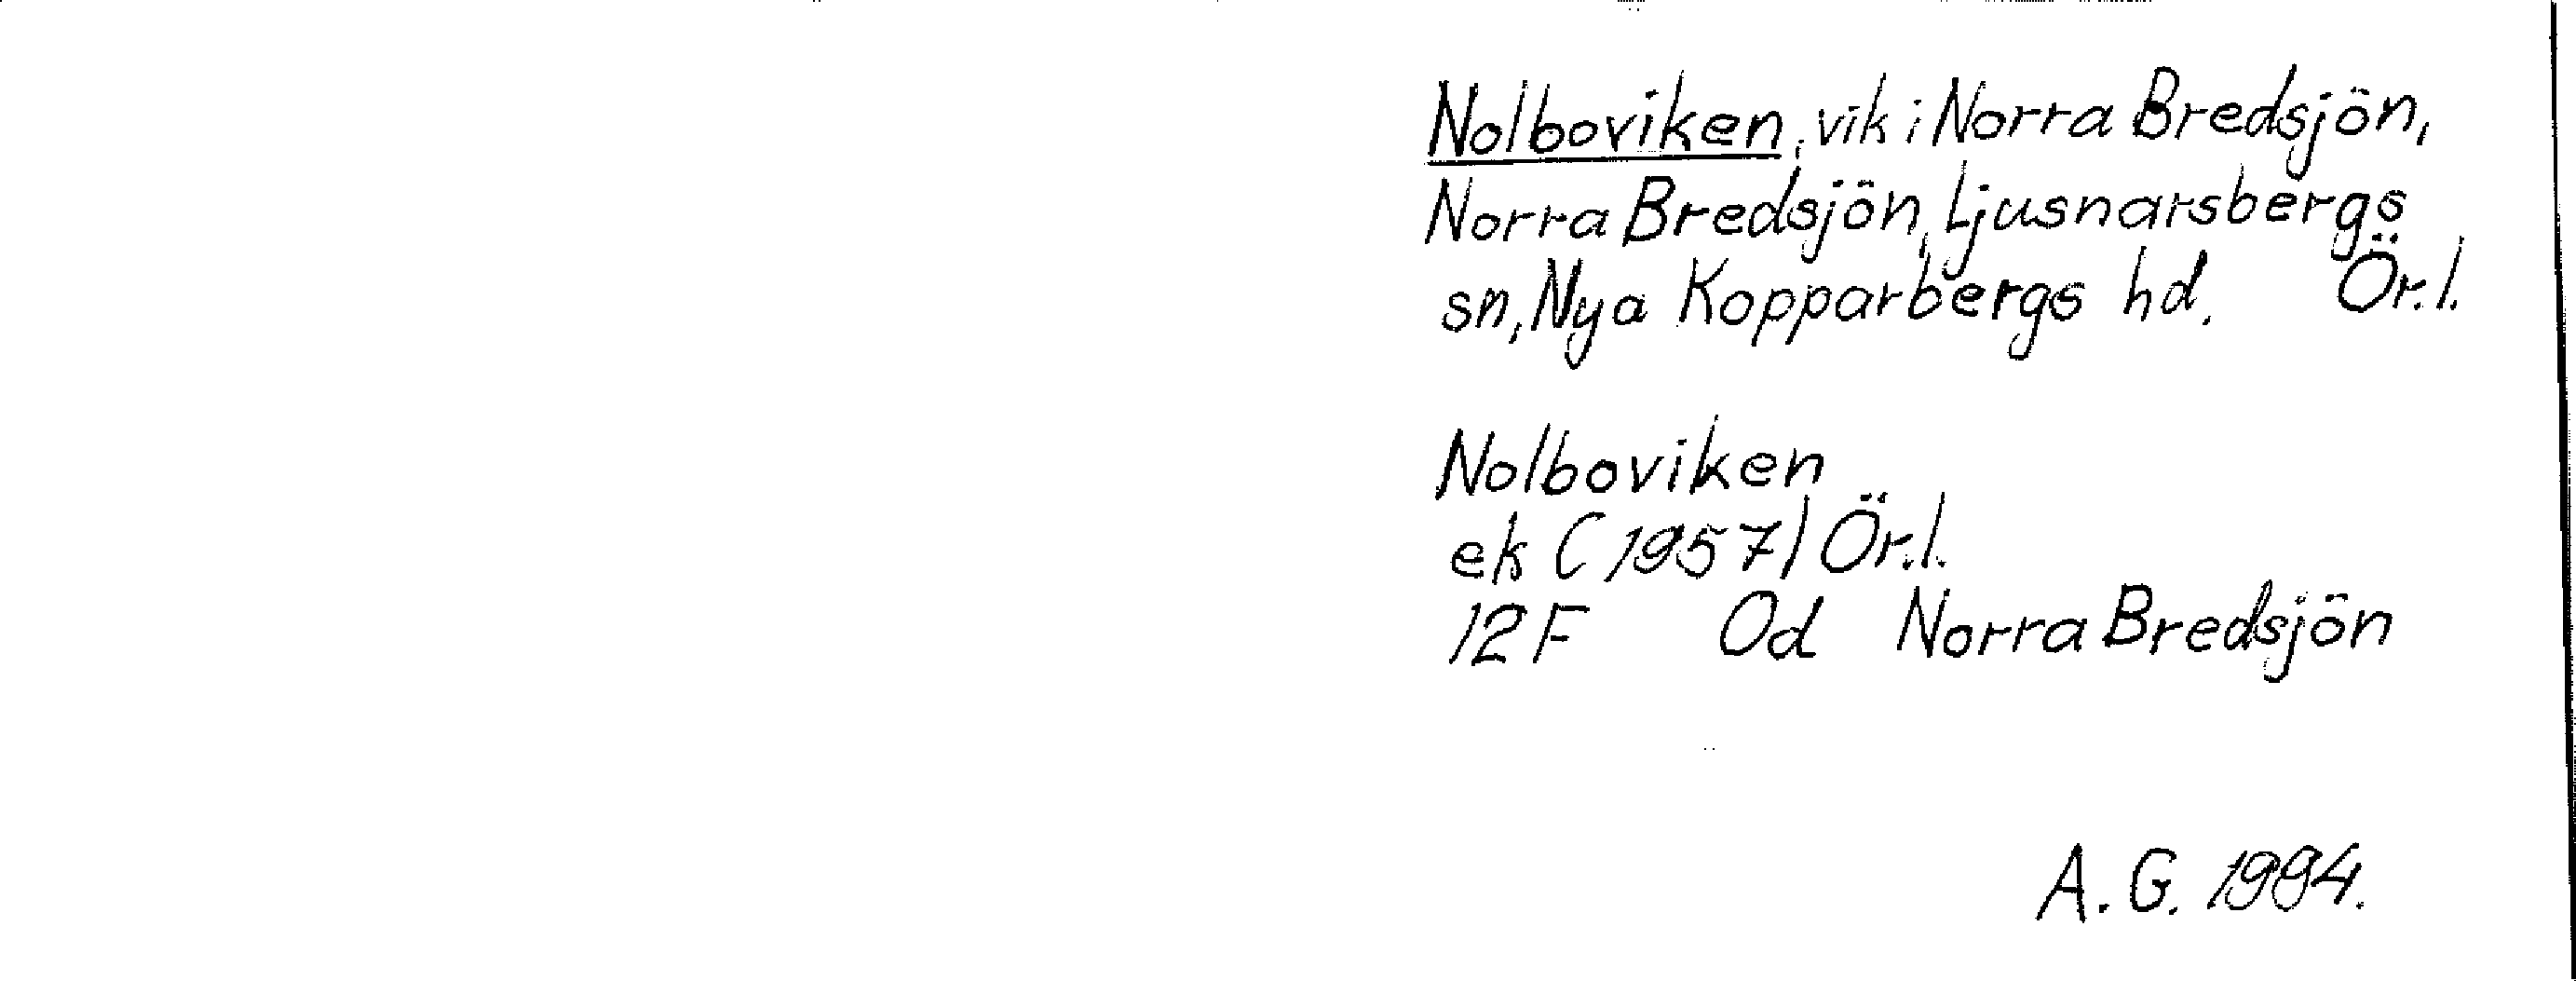 Nolboviken, vik i Norra Bredsjön,
Norra Bredsjön, Ljusnarsbergs
sn, Nya Kopparbergs hd. Ör.l.
Nolboviken
ek (1957) Ör.l.
12F 0d Norra Bredsjön
A.G. 1994.